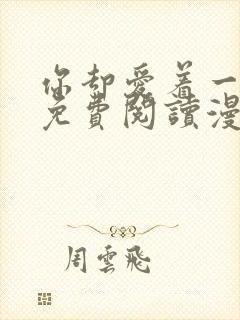 你却爱着一
免費閱讀漫
周雲飛